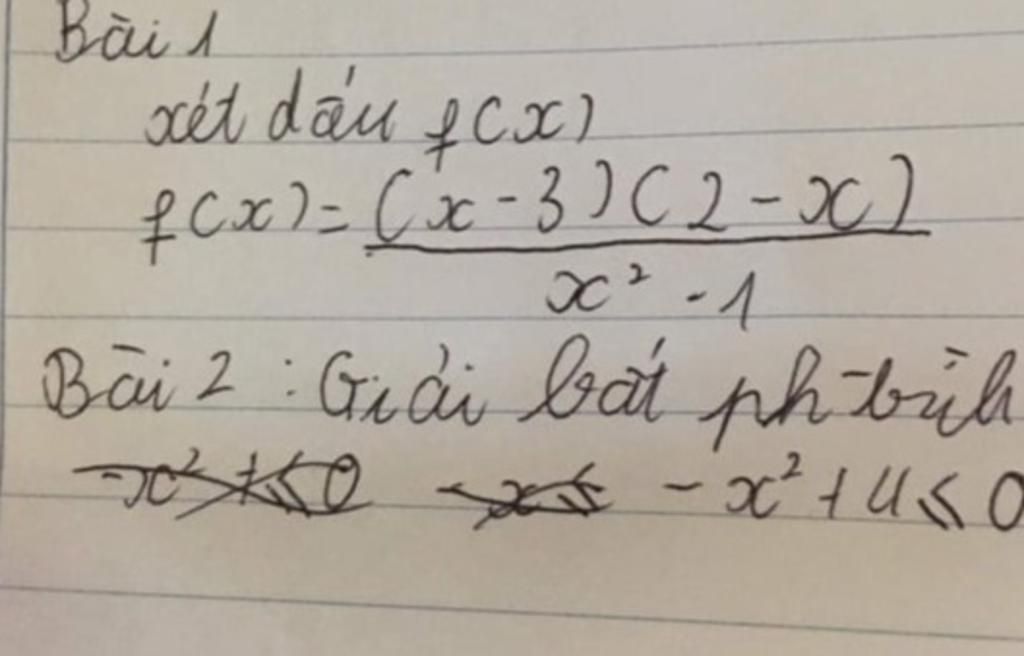 Bài 1
xét dấu f(x)
f(x) = (x - 3)(2 - x)
x² - 1
Bài 2 : Giải bất ph-trình
-x² + 4 ≤ 0